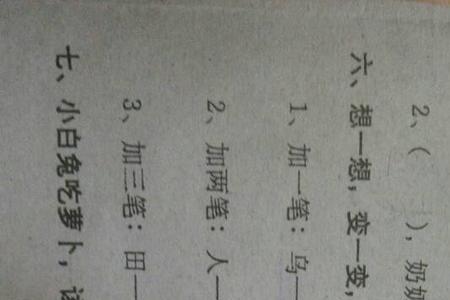 2、( )，奶
六、想一想，变一变，
1、加一笔：鸟一
2、加两笔：人一
3、加三笔：田一
七、小白兔吃萝卜，